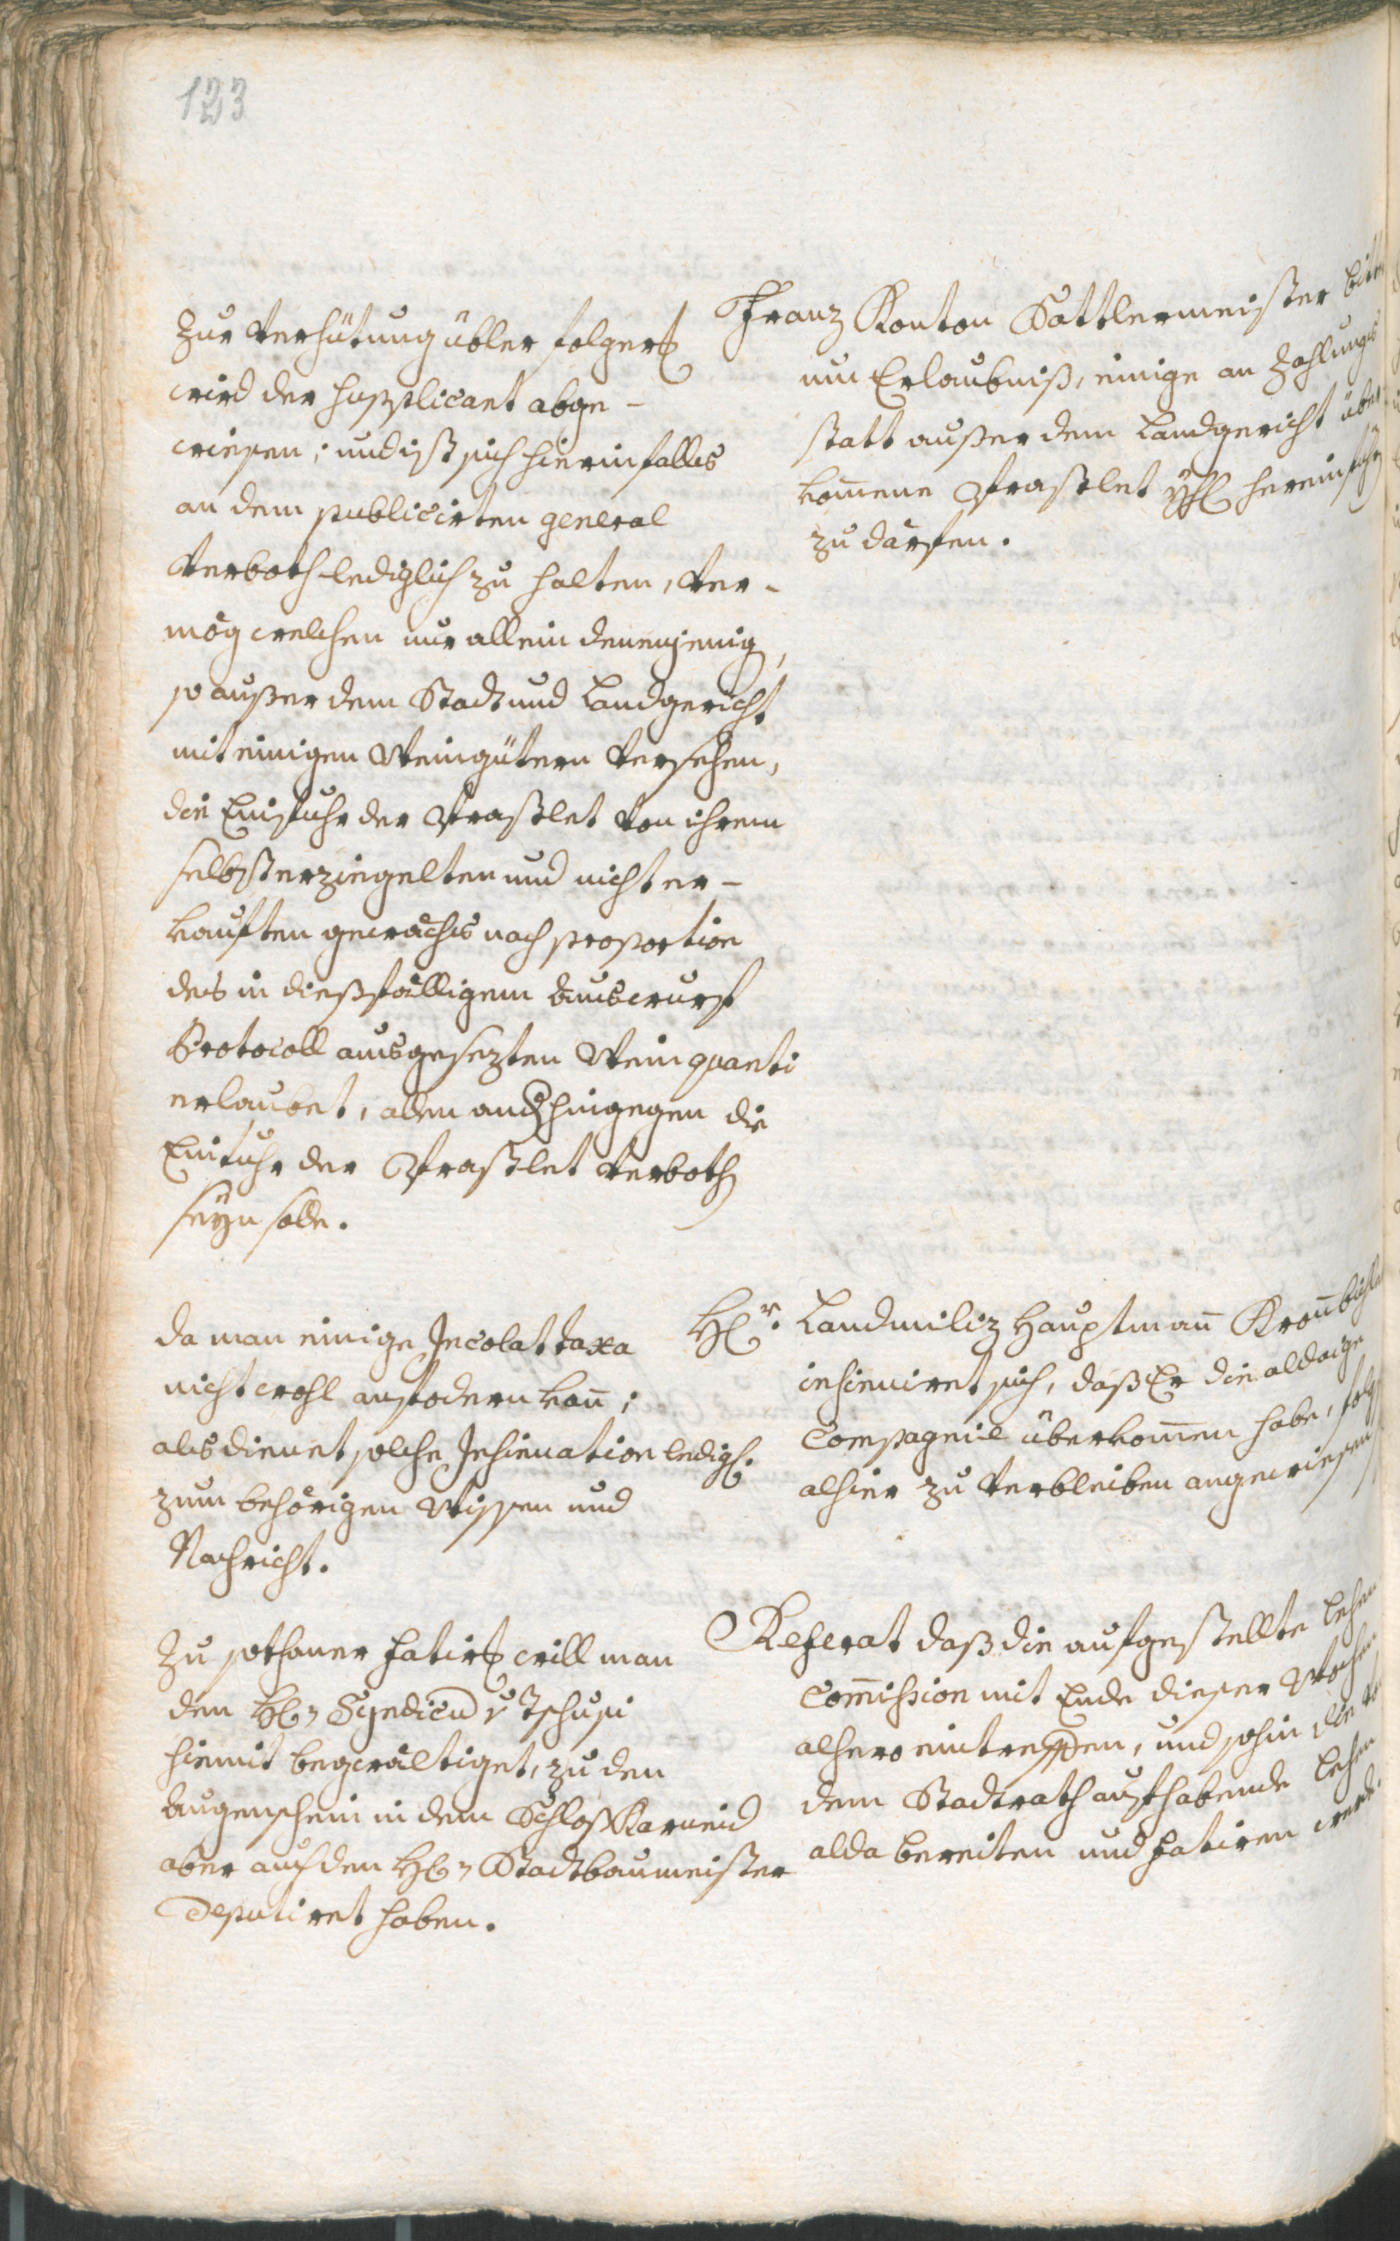 123
Zur Verhütung übler folgerß
wird der supplicant abge-
wiesen; und ist sich hierinfalls
an dem publicirten general
Verboth lediglich zu halten, ver-
mög welchen nur allein denenjenig,
so außer dem Stadt und Landgericht
mit einigen Weingütern versehen,
die Einfuhr der Praßlet von ihrem
selbst erziegelten und nicht er-
kauften gewächs nach proportion
des in dießfälligem auswurf
Protocoll ausgesezten Wein quanti
erlaubet, allen and hingegen die
Einfuhr der Praßlet verboth
seyn solle.
Franz Konton Sattlermeister bitt
um Erlaubniß, einige an Zahlungs
statt außer dem Landgericht über
komene Praßlet Yhl hereinführ
zu därfen.
da man einige Incolat taxa
nicht wohl anfodern kan̄;
als dienet solche Insinuation ledigl:
zum behörigen Wissen und
Nachricht.
H\r. Landmiliz Hauptman̄ Kron̄bichl
insinuiret sich, daß Er die aldaige
Compagnie überkom̄en habe, folgl
alhier zu verbleiben angewiesen
Zu sothaner fatirß will man
den H\n Syndicu v Tschusi
hiemit begwältiget, zu den
Augenschein in dem Schloß Karneid
aber auf den H\n Stadtbaumeister
deputiret haben.
Referat daß die aufgestellte Lehen
Com̄ission mit Ende dieser Wochen
alhero eintreffen, und sohin die vo
dem Stadtrath aufhabende Lehen
alda bereiten und fatiren werde.